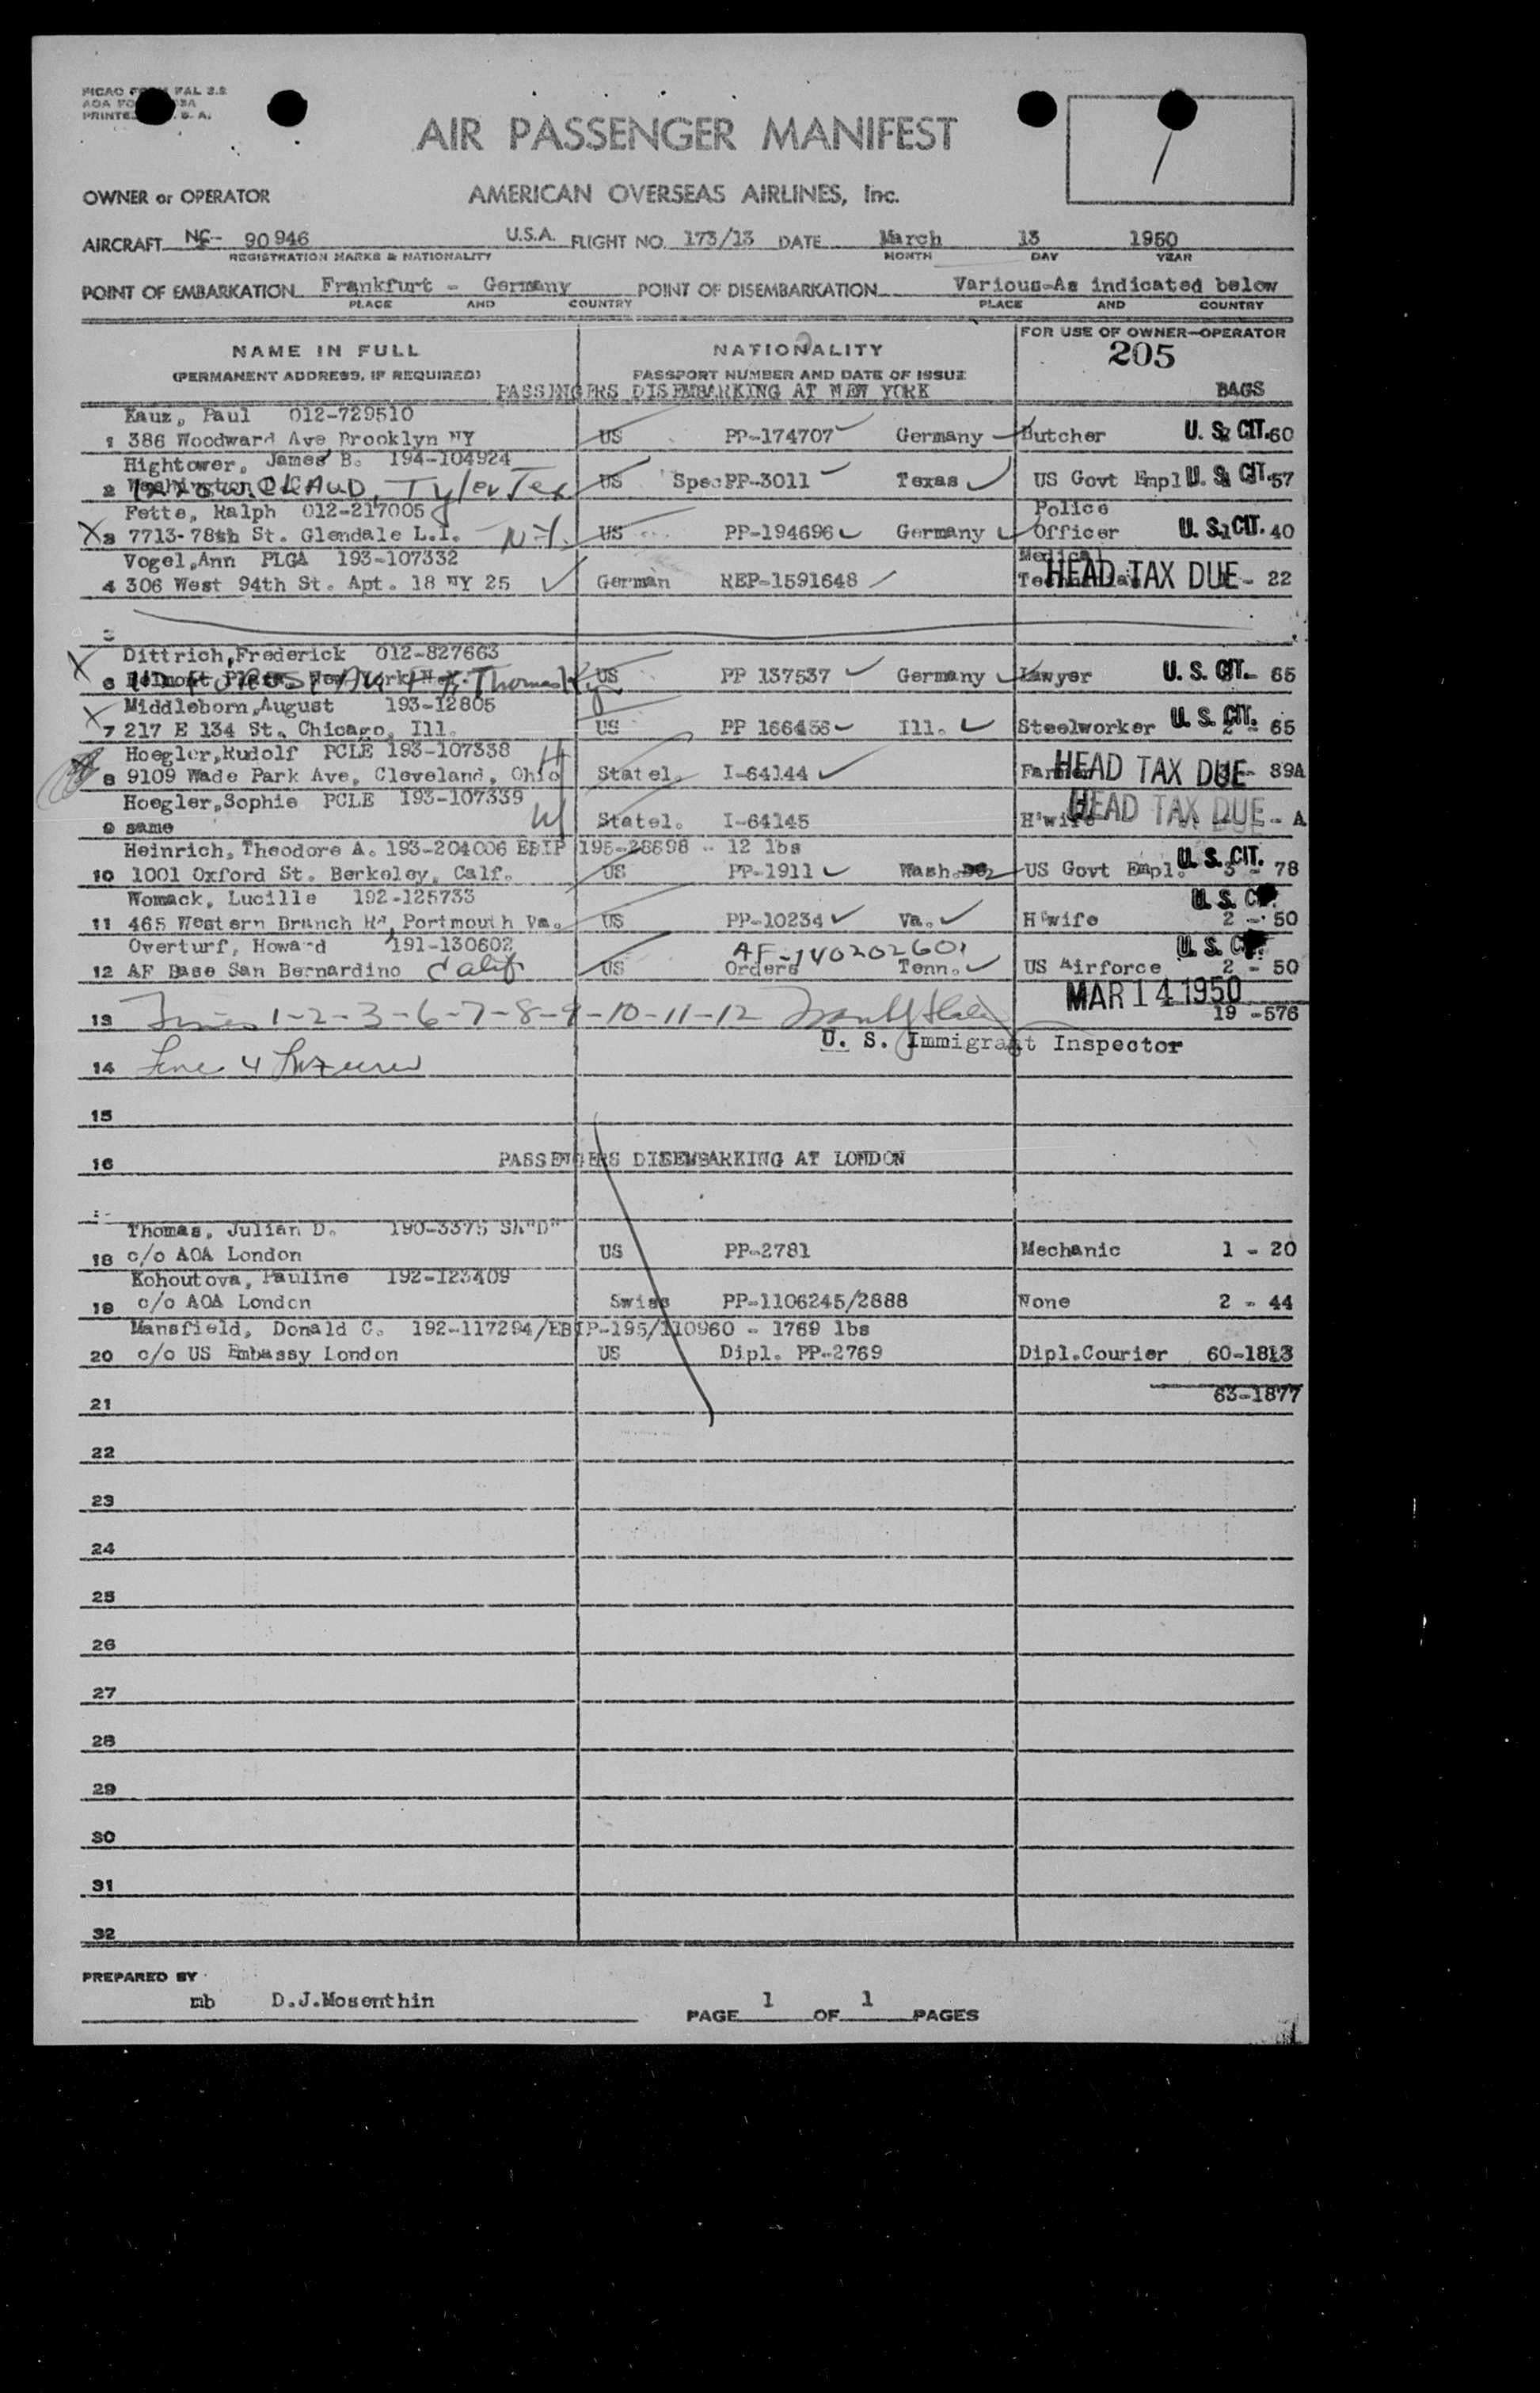 PICAO FORM FAL 3.2
AOA FO
PRINTE U. S. A.
AIR PASSENGER MANIFEST
OWNER or OPERATOR AMERICAN OVERSEAS AIRLINES, Inc.
AIRCRAFT NC- 90946 U.S.A. FLIGHT NO. 173/13 DATE March 13 1950
REGISTRATION MARKS & NATIONALITY MONTH DAY YEAR
POINT OF EMBARKATION Frankfurt - Germany POINT OF DISEMBARKATION Various-As indicated below
PLACE AND COUNTRY PLACE AND COUNTRY
FOR USE OF OWNER-OPERATOR
NAME IN FULL NATIONALITY 205
(PERMANENT ADDRESS, IF REQUIRED) PASSPORT NUMBER AND DATE OF ISSUE
PASSENGERS DISEMBARKING AT NEW YORK BAGS
Kauz, Paul 012-729510
1 386 Woodward Ave Brooklyn NY US PP-174707 Germany Butcher U. S. CIT. 60
Hightower, James B. 194-104924
2 Washington Tyler Tex US Spec PP-3011 Texas US Govt Empl U. S. CIT. 57
Fette, Ralph 012-217005 Police
X 3 7713-78th St. Glendale L.I. N-Y. US PP-194696 Germany Officer U. S. CIT. 40
Vogel, Ann PLGA 193-107332 Medical
4 306 West 94th St. Apt. 18 NY 25 German REP-1591648 HEAD TAX DUE - 22
Dittrich, Frederick 012-827663
X 6 Thomas US PP 137537 Germany Lawyer U. S. CIT. - 65
Middleborn, August 193-12805
X 7 217 E 134 St. Chicago, Ill. US PP 166436 Ill. Steelworker U. S. CIT. 2 - 65
Hoegler, Rudolf PCLE 193-107338 H
8 9109 Wade Park Ave, Cleveland, Ohio Statel. I-64144 Farmer HEAD TAX DUE - 89A
Hoegler, Sophie PCLE 193-107339 W
9 same Statel. I-64145 H'wife HEAD TAX DUE - A
Heinrich, Theodore A. 193-204006 EBIP 195-28898 - 12 lbs
10 1001 Oxford St. Berkeley, Calf. US PP-1911 Wash. US Govt Empl. U. S. CIT. 3 - 78
Womack, Lucille 192-125733
11 465 Western Branch Rd, Portmouth Va. US PP-10234 Va. H'wife U. S. 2 - 50
Overturf, Howard 191-130602 AF-140202601
12 AF Base San Bernardino Calif US Orders Tenn. US Airforce U. S. 2 - 50
MAR 14 1950
13 Lines 1-2-3-6-7-8-9-10-11-12 19 - 576
U. S. Immigrant Inspector
14 Line 4
15
16 PASSENGERS DISEMBARKING AT LONDON
Thomas, Julian D. 190-3375 SA"D"
18 c/o AOA London US PP-2781 Mechanic 1 - 20
Kohoutova, Pauline 192-123409
19 c/o AOA London Swiss PP-1106245/2888 None 2 - 44
Mansfield, Donald C. 192-117294/EBIP-195/110960 - 1769 lbs
20 c/o US Embassy London US Dipl. PP-2769 Dipl.Courier 60-1813
21 63-1877
22
23
24
25
26
27
28
29
30
31
32
PREPARED BY
mb D.J.Mosenthin PAGE 1 OF 1 PAGES